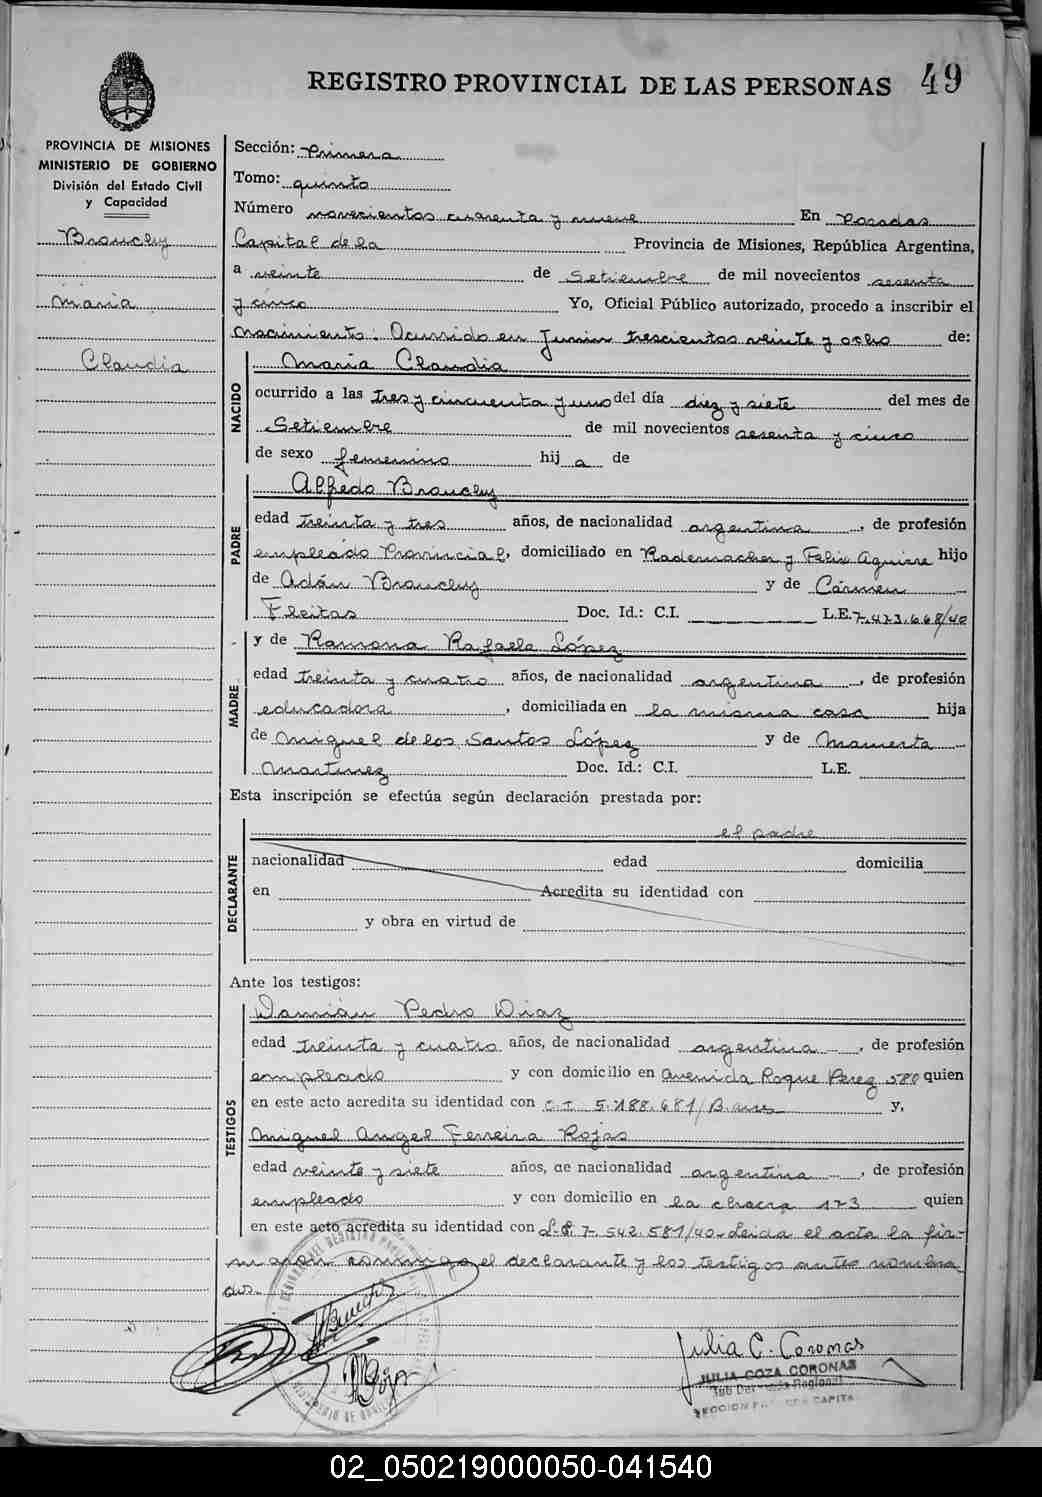 REGISTRO PROVINCIAL DE LAS PERSONAS 49
PROVINCIA DE MISIONES
MINISTERIO DE GOBIERNO
División del Estado Civil
y Capacidad
Brouchuy
Maria
Claudia
Sección: Primera
Tomo: quinto
Número novecientos cuarenta y nueve En Posadas
Capital de la Provincia de Misiones, República Argentina,
a veinte de Setiembre de mil novecientos sesenta
y cinco Yo, Oficial Público autorizado, procedo a inscribir el
nacimiento: Ocurrido en Junin trescientos veinte y ocho de:
NACIDO
Maria Claudia
ocurrido a las tres y cincuenta y uno del día diez y siete del mes de
Setiembre de mil novecientos sesenta y cinco
de sexo femenino hij a de
PADRE
Alfredo Brouchuy
edad treinta y tres años, de nacionalidad argentina, de profesión
empleado Provincial, domiciliado en Rademacher y Felix Aguirre hijo
de Adán Brouchuy y de Cármen
Fleitas Doc. Id.: C.I. L.E. 7.473.668/40
MADRE
y de Ramona Rafaela López
edad treinta y cuatro años, de nacionalidad argentina, de profesión
educadora, domiciliada en la misma casa hija
de Miguel de los Santos López y de Mamerta
Martinez Doc. Id.: C.I. L.E.
Esta inscripción se efectúa según declaración prestada por:
DECLARANTE
el padre
nacionalidad edad domicilia
en Acredita su identidad con
y obra en virtud de
Ante los testigos:
TESTIGOS
Damián Pedro Diaz
edad treinta y cuatro años, de nacionalidad argentina, de profesión
empleado y con domicilio en Avenida Roque Perez 580 quien
en este acto acredita su identidad con C.I. 5.188.681/B. aires y,
Miguel Angel Ferreira Rojas
edad veinte y siete años, de nacionalidad argentina, de profesión
empleado y con domicilio en la chacra 173 quien
en este acto acredita su identidad con L.E. 7.542.581/40. Leida el acta la fir-
maron conmigo el declarante y los testigos antes nombra-
dos.
Julia C. Coronas
JULIA COZA CORONAS
Sub Regional
SECCION CAPITA
02_050219000050-041540